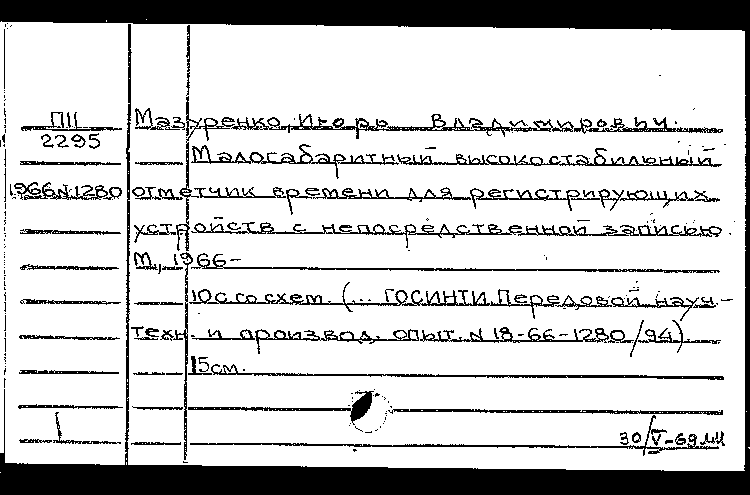 П11 Мазуренко, Игорь Владимирович.
2295
Малогабаритный высокостабильный
1966N1280 отметчик времени для регистрирующих
устройств с непосредственной записью.
М., 1966-
10с. со схем. (... ГОСИНТИ. Передовой науч-
техн. и производ. опыт. N 18-66-1280/94)
15см.
30/V-69